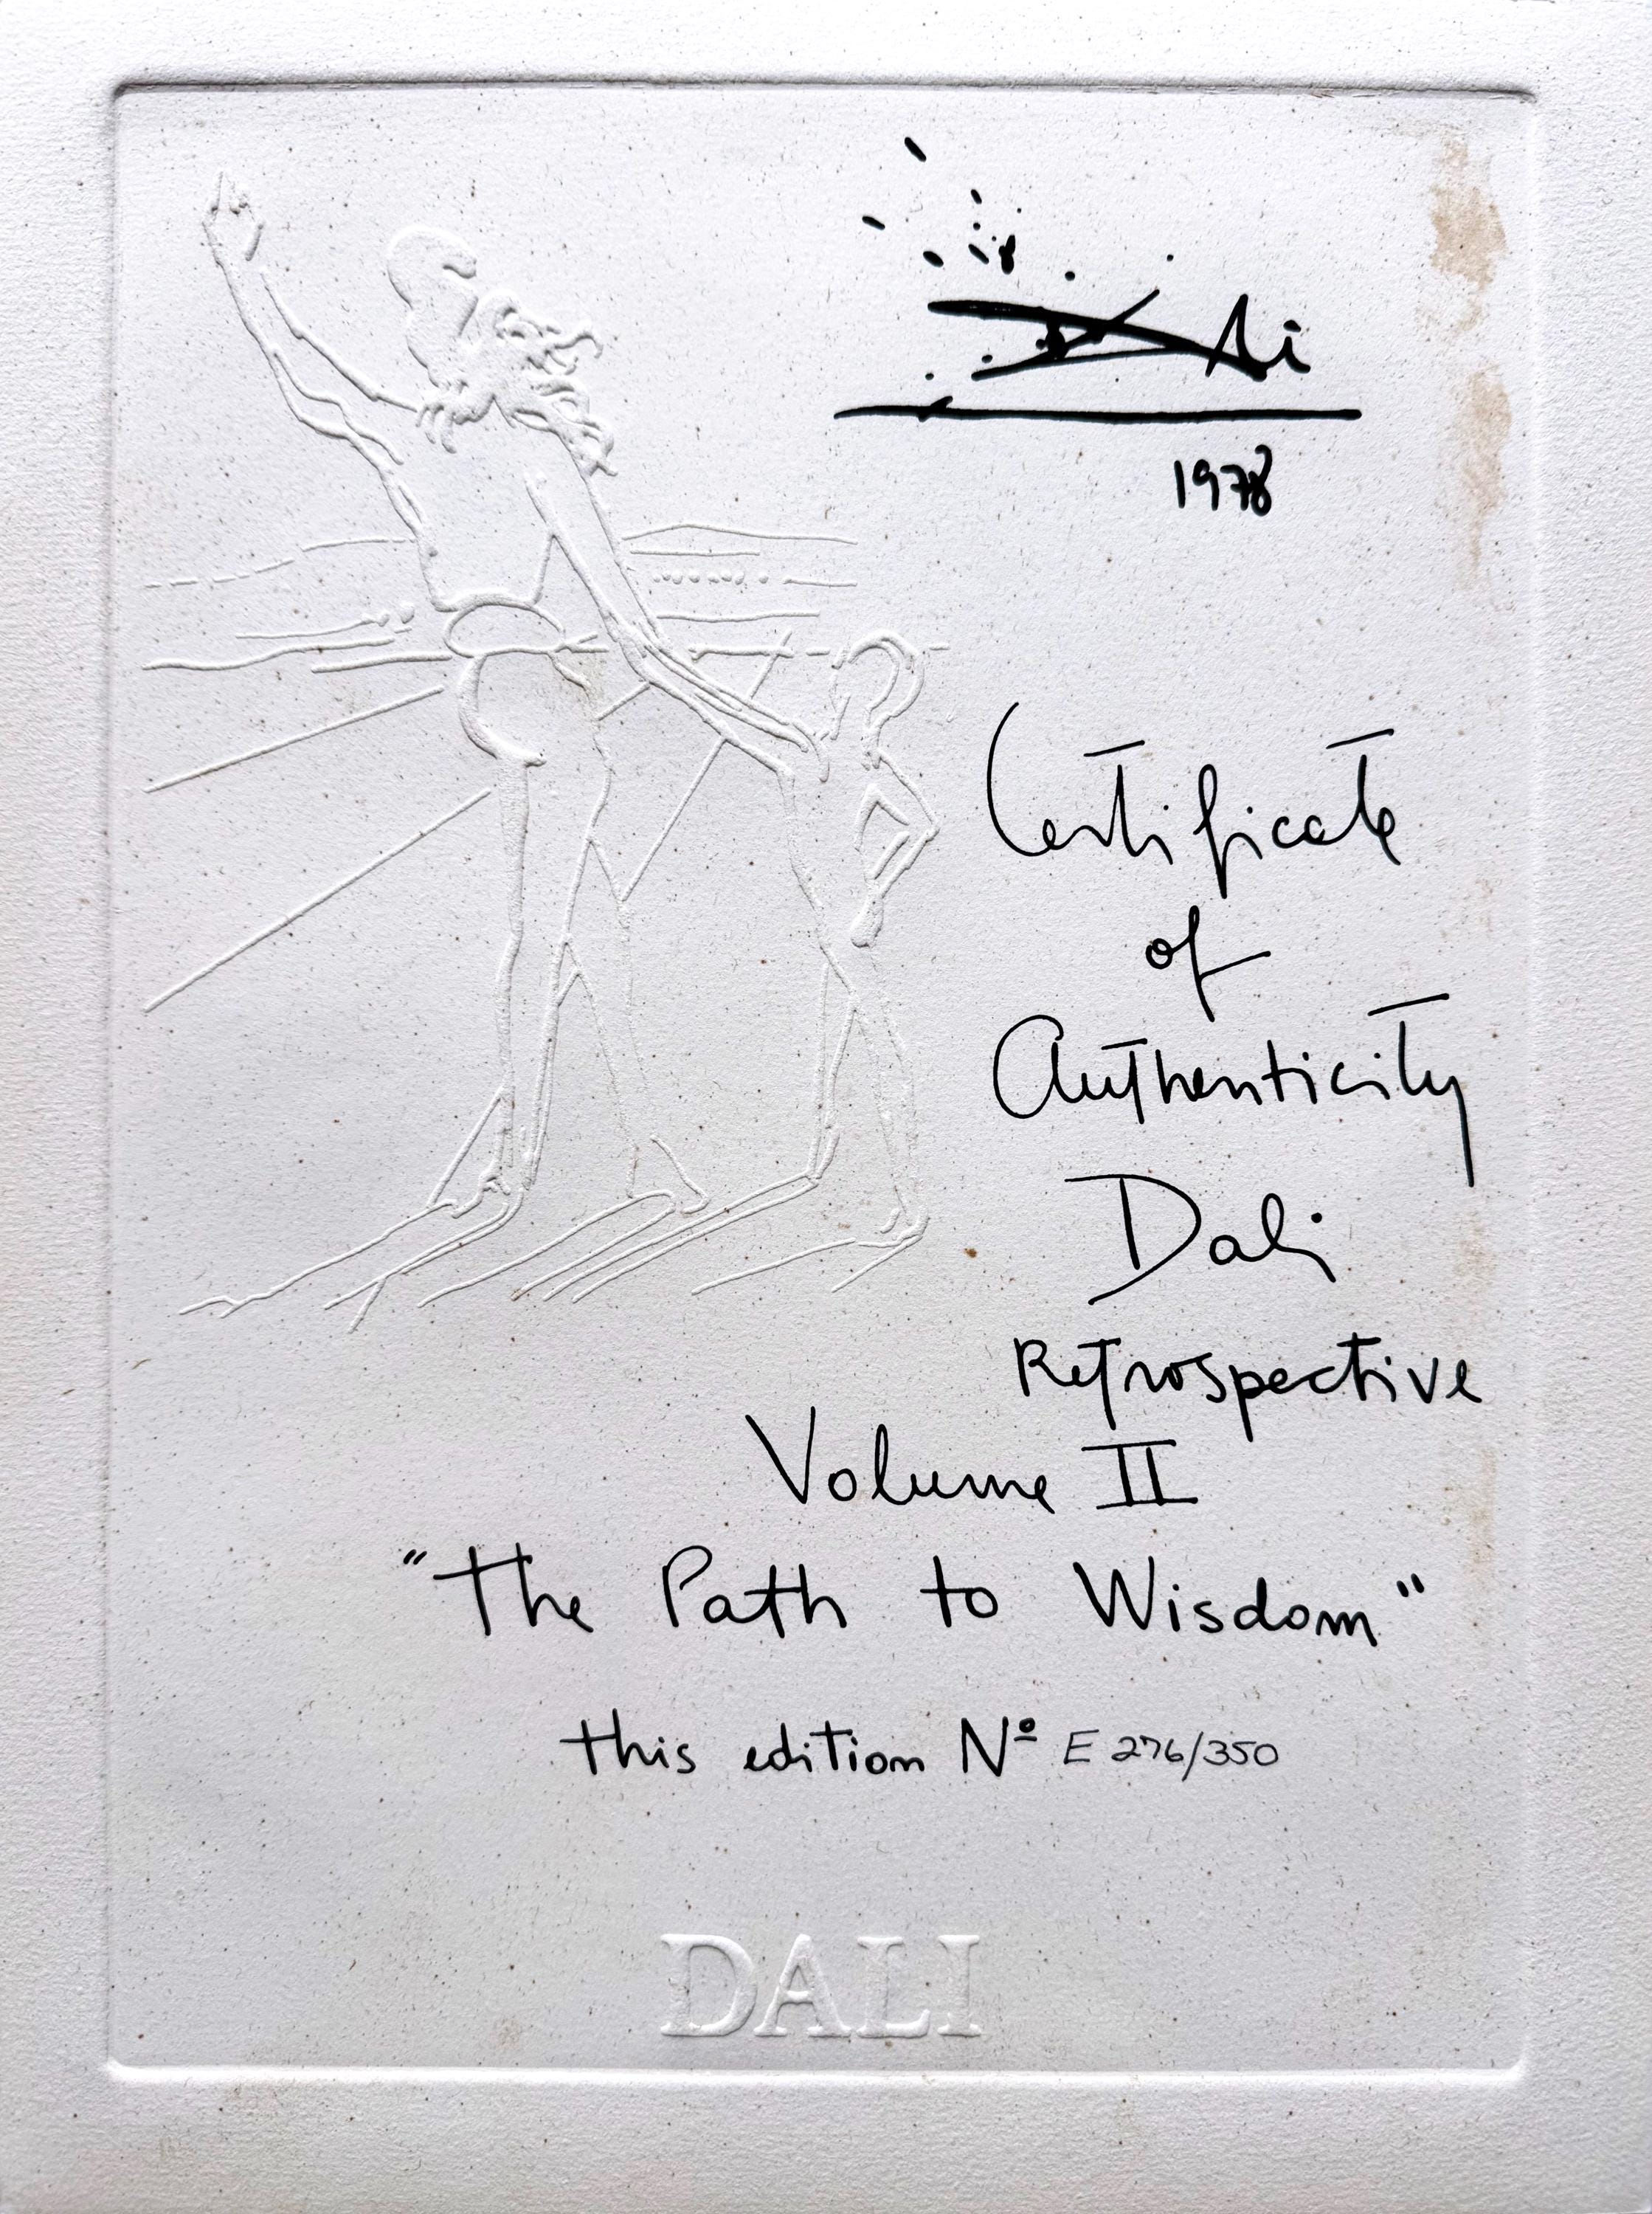 Dali
1978
Certificate
of
Authenticity
Dali
Retrospective
Volume II
"The Path to Wisdom"
this edition Nº E 276/350
DALI